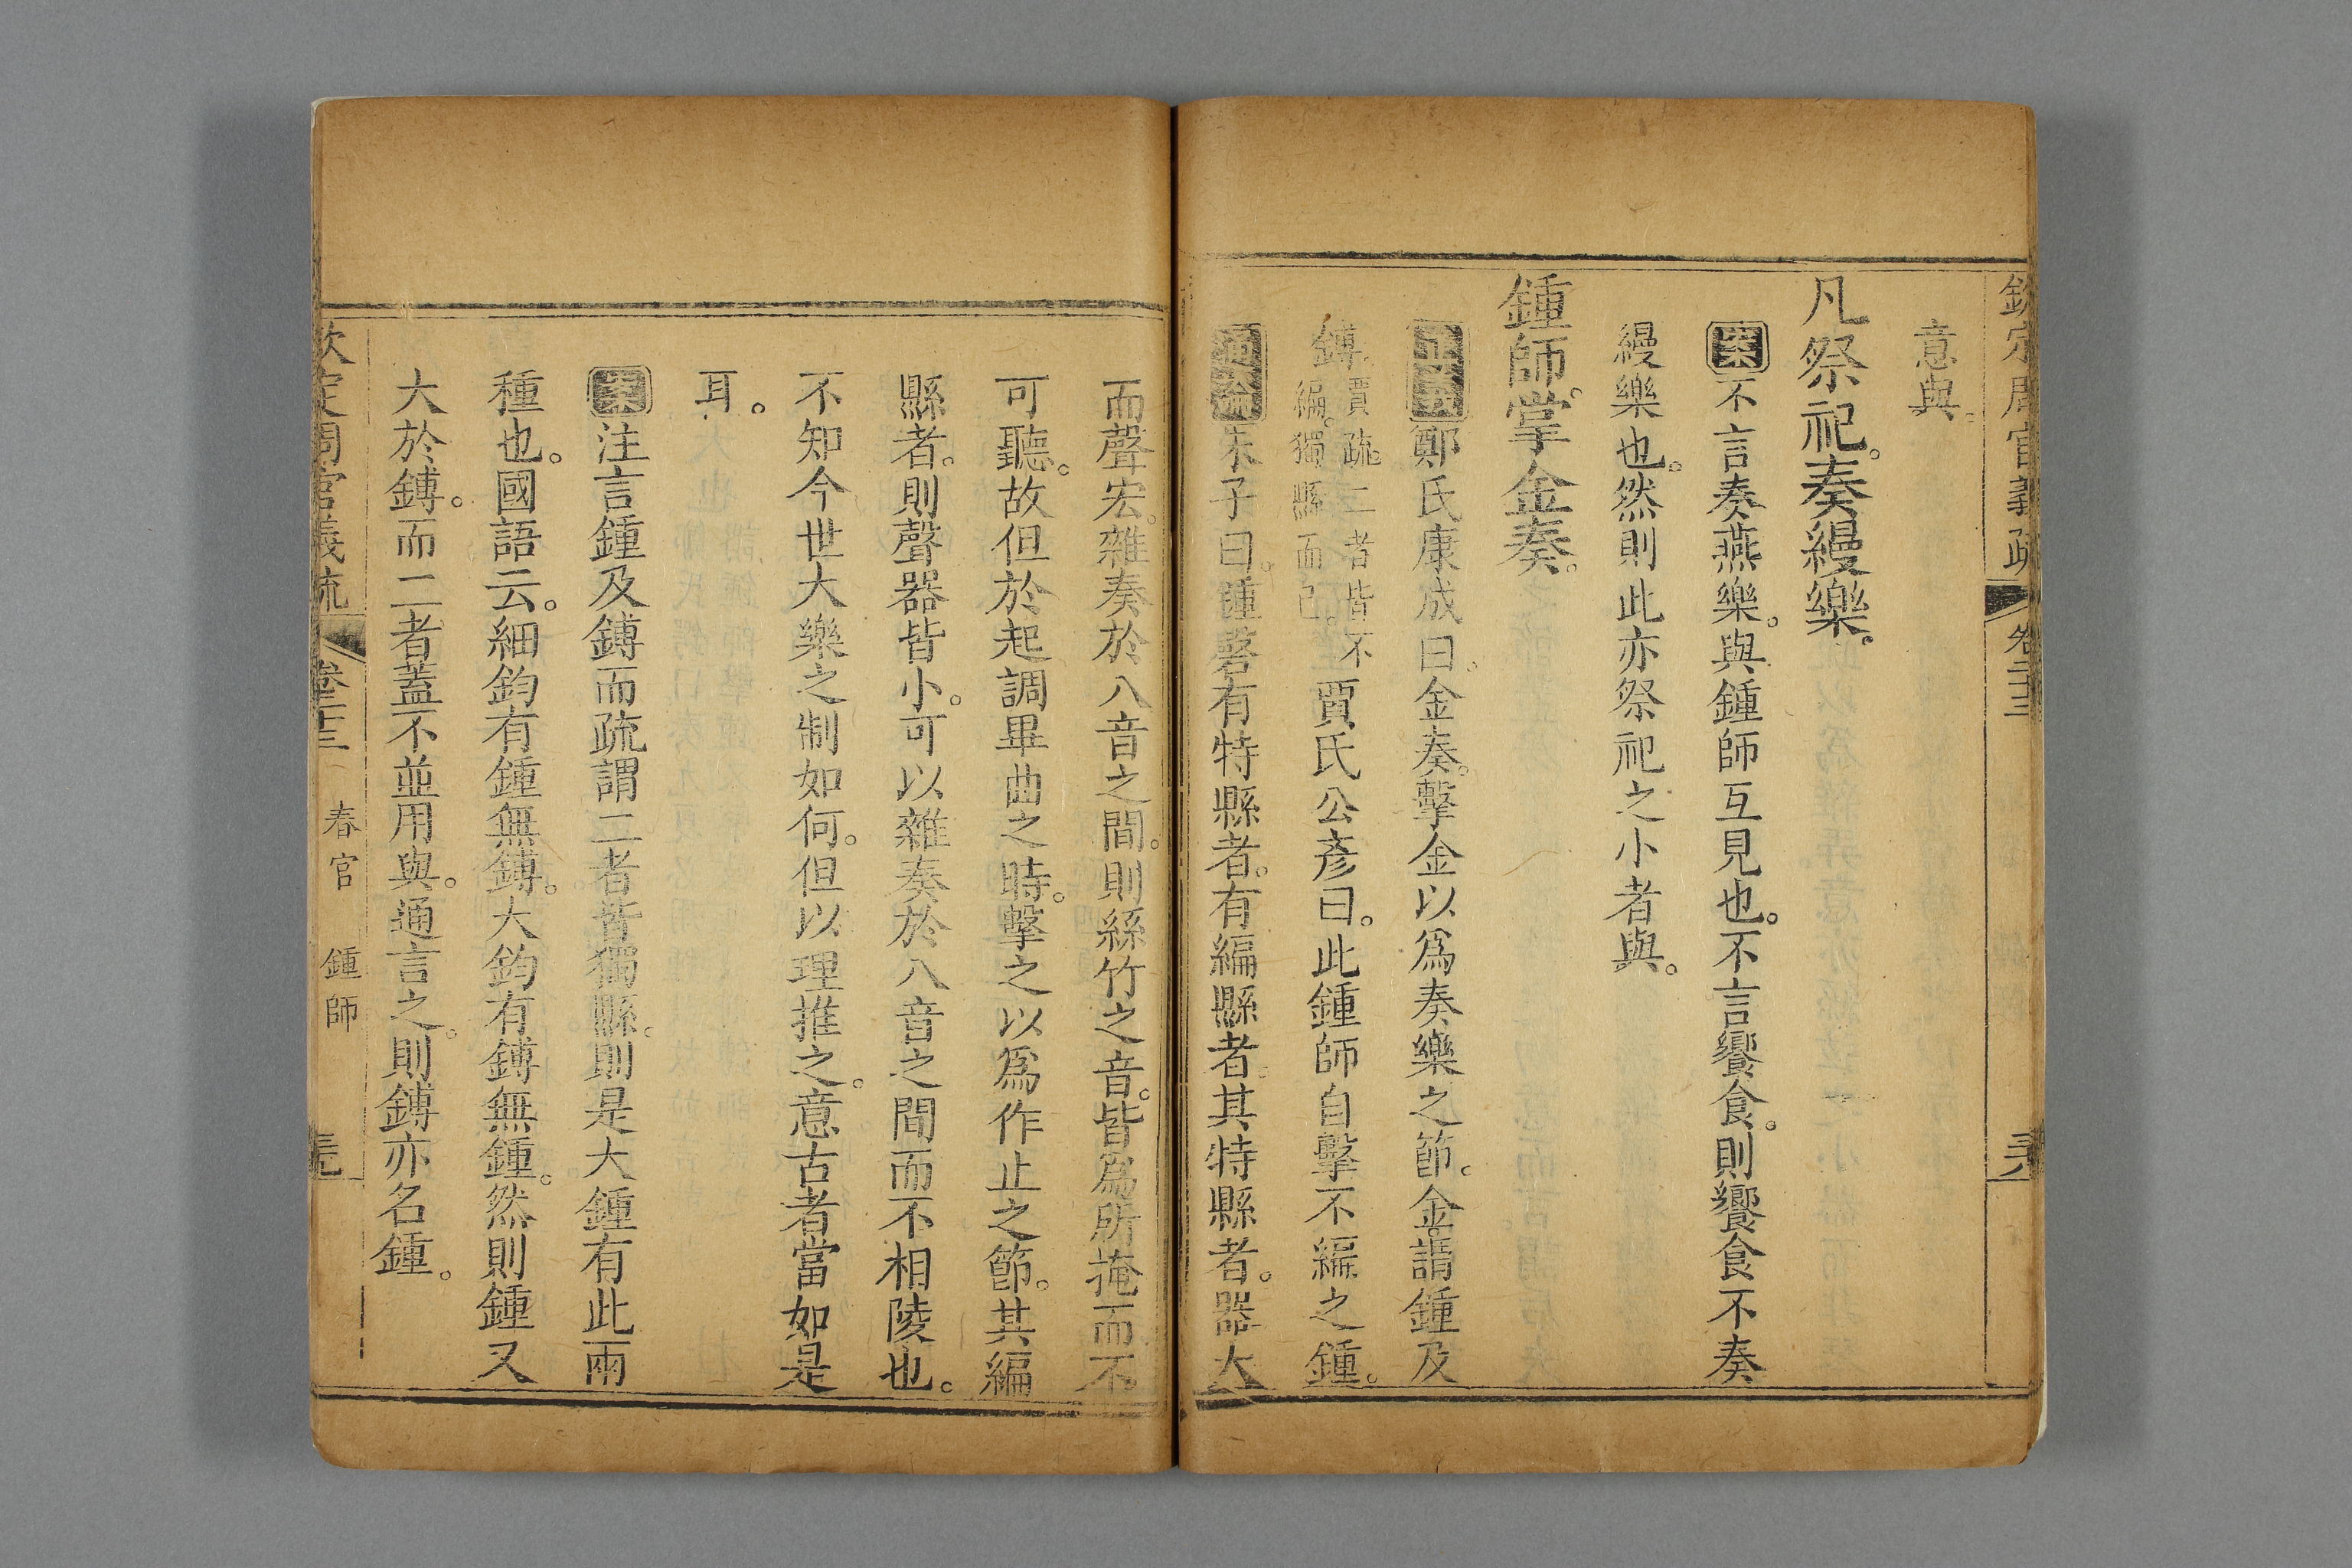 欽定周官義疏 卷三十三 三六
意與。
凡祭祀。奏縵樂。
案不言奏燕樂。與鍾師互見也。不言饗食。則饗食不奏
縵樂也。然則此亦祭祀之小者與。
鍾師。掌金奏。
正義鄭氏康成曰。金奏。擊金以爲奏樂之節。金謂鍾及
鎛。賈疏。二者皆不編。獨縣而已。賈氏公彥曰。此鍾師自擊不編之鍾。
通論朱子曰。鍾磬有特縣者。有編縣者。其特縣者。器大
而聲宏。雜奏於八音之間。則絲竹之音。皆爲所掩而不
可聽。故但於起調畢曲之時。擊之以爲作止之節。其編
縣者。則聲器皆小。可以雜奏於八音之間而不相陵也。
不知今世大樂之制如何。但以理推之。意古者當如是
耳。
案注言鍾及鎛而疏謂二者皆獨縣。則是大鍾有此兩
種也。國語云。細鈞有鍾無鎛。大鈞有鎛無鍾。然則鍾又
大於鎛。而二者蓋不並用與。通言之。則鎛亦名鍾。
欽定周官義疏 卷二十三 春官 鍾師